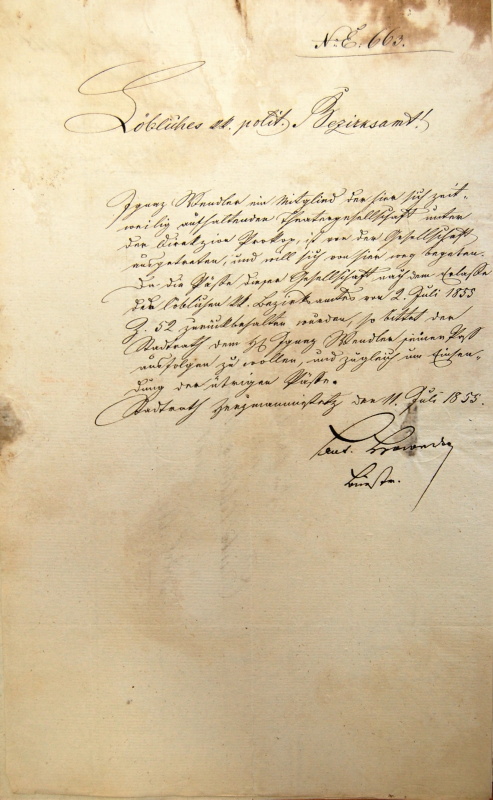 N: E. 663.
Löbliches kk. polit. Bezirksamt!
Ignaz Wendler ein Mitglied der hier sich zeit-
weilig aufhaltender Theatergesellschaft unter
der Direkzion Prokop, ist von der Gesellschaft
ausgetreten, und will sich von hier weg begeben.
Da die Pässe dieser Gesellschaft nach dem Erlasse
des löblichen kk. Bezirksamtes von 2. Juli 1855
Z. 52 zurückbehalten wurden, so bittet der
Stadtrath dem H Ignaz Wendler seinen Pass
ausfolgen zu wollen, und zugleich um Einsen-
dung der übrigen Pässe.
Stadtrath Hermannmiestetz den 11. Juli 1855.
Ant.
Bürstr.